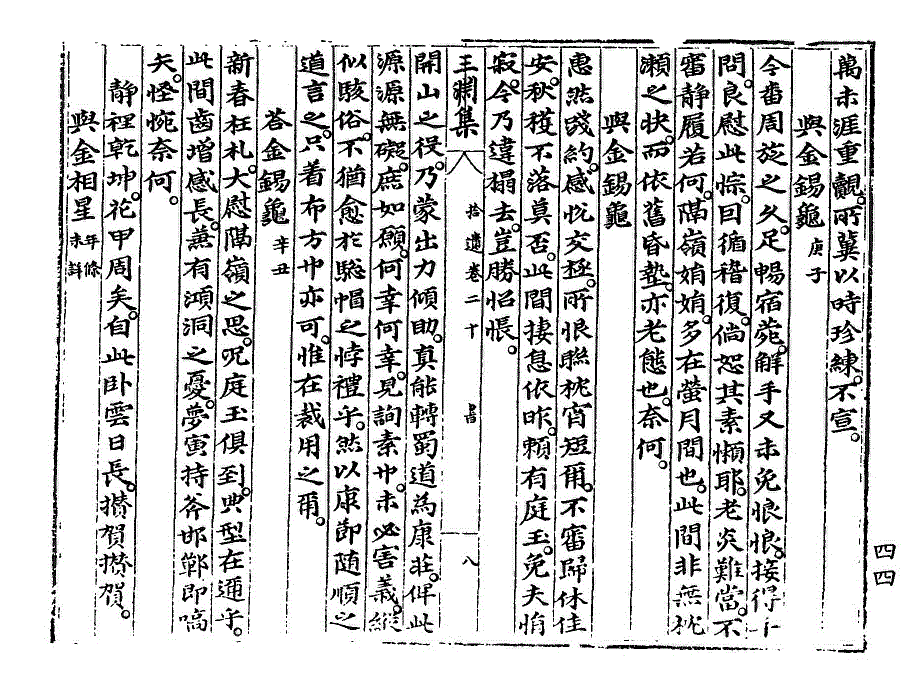 萬未涯重覯。所冀以時珍練。不宣。
與金錫龜 庚子
今番周旋之久。足暢宿菀。解手又未免悢悢。接得手
問。良慰此悰。回循稽復。倘恕其素懶耶。老炎難當。不
審靜履若何。隔嶺娟娟。多在螢月間也。此間非無枕
瀨之快。而依舊昏墊。亦老態也。奈何。
與金錫龜
惠然踐約。感悅交極。所恨聯枕宵短爾。不審歸休佳
安。秋穫不落莫否。此間捿息依昨。賴有庭玉。免夫悄
寂。今乃違榻去。豈勝怊悵。
玉淵集 拾遺卷二十 書 八
開山之役。乃蒙出力傾助。眞能轉蜀道爲康莊。俾此
源源無礙。庶如願。何幸何幸。見詢素巾。未必害義。縱
似駭俗。不猶愈於驄帽之悖禮乎。然以康節隨順之
道言之。只着布方巾亦可。惟在裁用之爾。
答金錫龜 辛丑
新春枉札。大慰隔嶺之思。况庭玉俱到。典型在通乎。
此間齒增感長。兼有澒洞之憂。夢寅持斧邯鄲。即嗃
矣。怪惋奈何。
與金相星 年條未詳
靜裡乾坤。花甲周矣。自此臥雲日長。攢賀攢賀。
四四